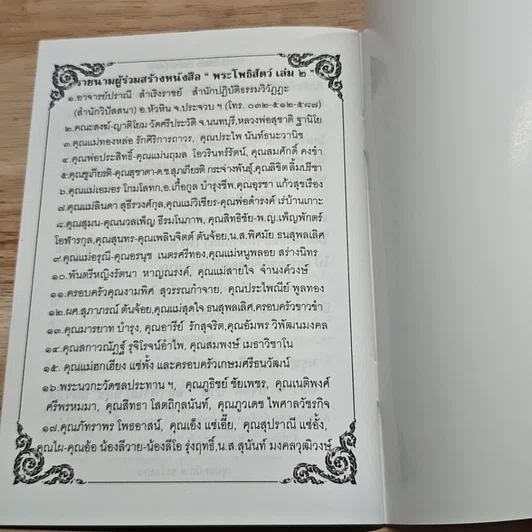 รายนามผู้ร่วมสร้างหนังสือ " พระโพธิสัตว์ เล่ม ๒ "
๑.อาจารย์ปราณี สำเริงราชย์ สำนักปฏิบัติธรรมวิวัฏฏะ
(สำนักวิปัสสนา) อ.หัวหิน จ.ประจวบ ฯ (โทร. ๐๓๒-๕๑๒-๕๘๗)
๒.คณะสงฆ์-ญาติโยม วัดศรีประวัติ จ.นนทบุรี,หลวงพ่อสุชาติ ฐานิโย
๓.คุณแม่ทองหล่อ รักศิริการถาวร, คุณประไพ นันท์ธนะวานิช
๔.คุณพ่อประสิทธิ์-คุณแม่นฤมล โอวรินทร์รัตน์, คุณสมศักดิ์ คงขำ
๕.คุณชูเกียรติ-คุณสุชาดา-ด.ช.สุภเกียรติ กระจ่างพันธุ์,คุณลิขิต ลิ้มปรีชา
๖.คุณแม่เอมอร โกมโลทก,อ.เกื้อกูล บำรุงชีพ,คุณอุรชา แก้วสุขเรือง
๗.คุณแม่ลินดา สุธีรวงศ์กุล,คุณแม่วิเชียร-คุณพ่อดำรงค์ เร่บ้านเกาะ
๘.คุณสุมน-คุณนวลเพ็ญ ธีรมโนภาพ, คุณสิทธิชัย-พ.ญ.เพ็ญพักตร์
โอฬารกุล,คุณสุนทร-คุณเพลินจิตต์ ตันจ้อย,น.ส.พิศมัย ธนสุพลเลิศ
๙.คุณแม่อรุณี-คุณอรนุช เนตรศรีทอง,คุณแม่หนูพลอย สร่างนิทร
๑๐.พันตรีหญิงรัตนา หาญณรงค์, คุณแม่สายใจ จำนงค์วงษ์
๑๑.ครอบครัวคุณงามพิศ สุวรรณกำจาย, คุณประไพณีย์ พูลทอง
๑๒.ผศ.สุภาภรณ์ ตันจ้อย,คุณแม่สุดใจ ธนสุพลเลิศ,ครอบครัวขาวขำ
๑๓.คุณมารยาท บำรุง, คุณอารีย์ รักสุจริต,คุณอัมพร วิพัฒนมงคล
๑๔.คุณสกาวณัฏฐ์ รุจิโรจน์อำไพ, คุณสมพงษ์ เมธาวิชาโน
๑๕. คุณแม่ฮกเฮียง แซ่พั้ง และครอบครัวเกษมศรีธนวัฒน์
๑๖.พระนวกะวัดชลประทาน ฯ, คุณภูธิชย์ ชัยเพชร, คุณเนติพงศ์
ศรีพรหมมา, คุณสีทธา โสตถิกุลนันท์, คุณภูวเดช ไพศาลวัชรกิจ
๑๗.คุณภัทราพร โพธอาสน์, คุณเอ็ง แซ่เอี๊ย, คุณสุปราณี แซ่อั้ง,
คุณไผ่-คุณอ้อ น้องลีวาย-น้องลีโอ รุ่งฤทธิ์,น.ส.สุนันท์ มงคลวุฒิวงษ์